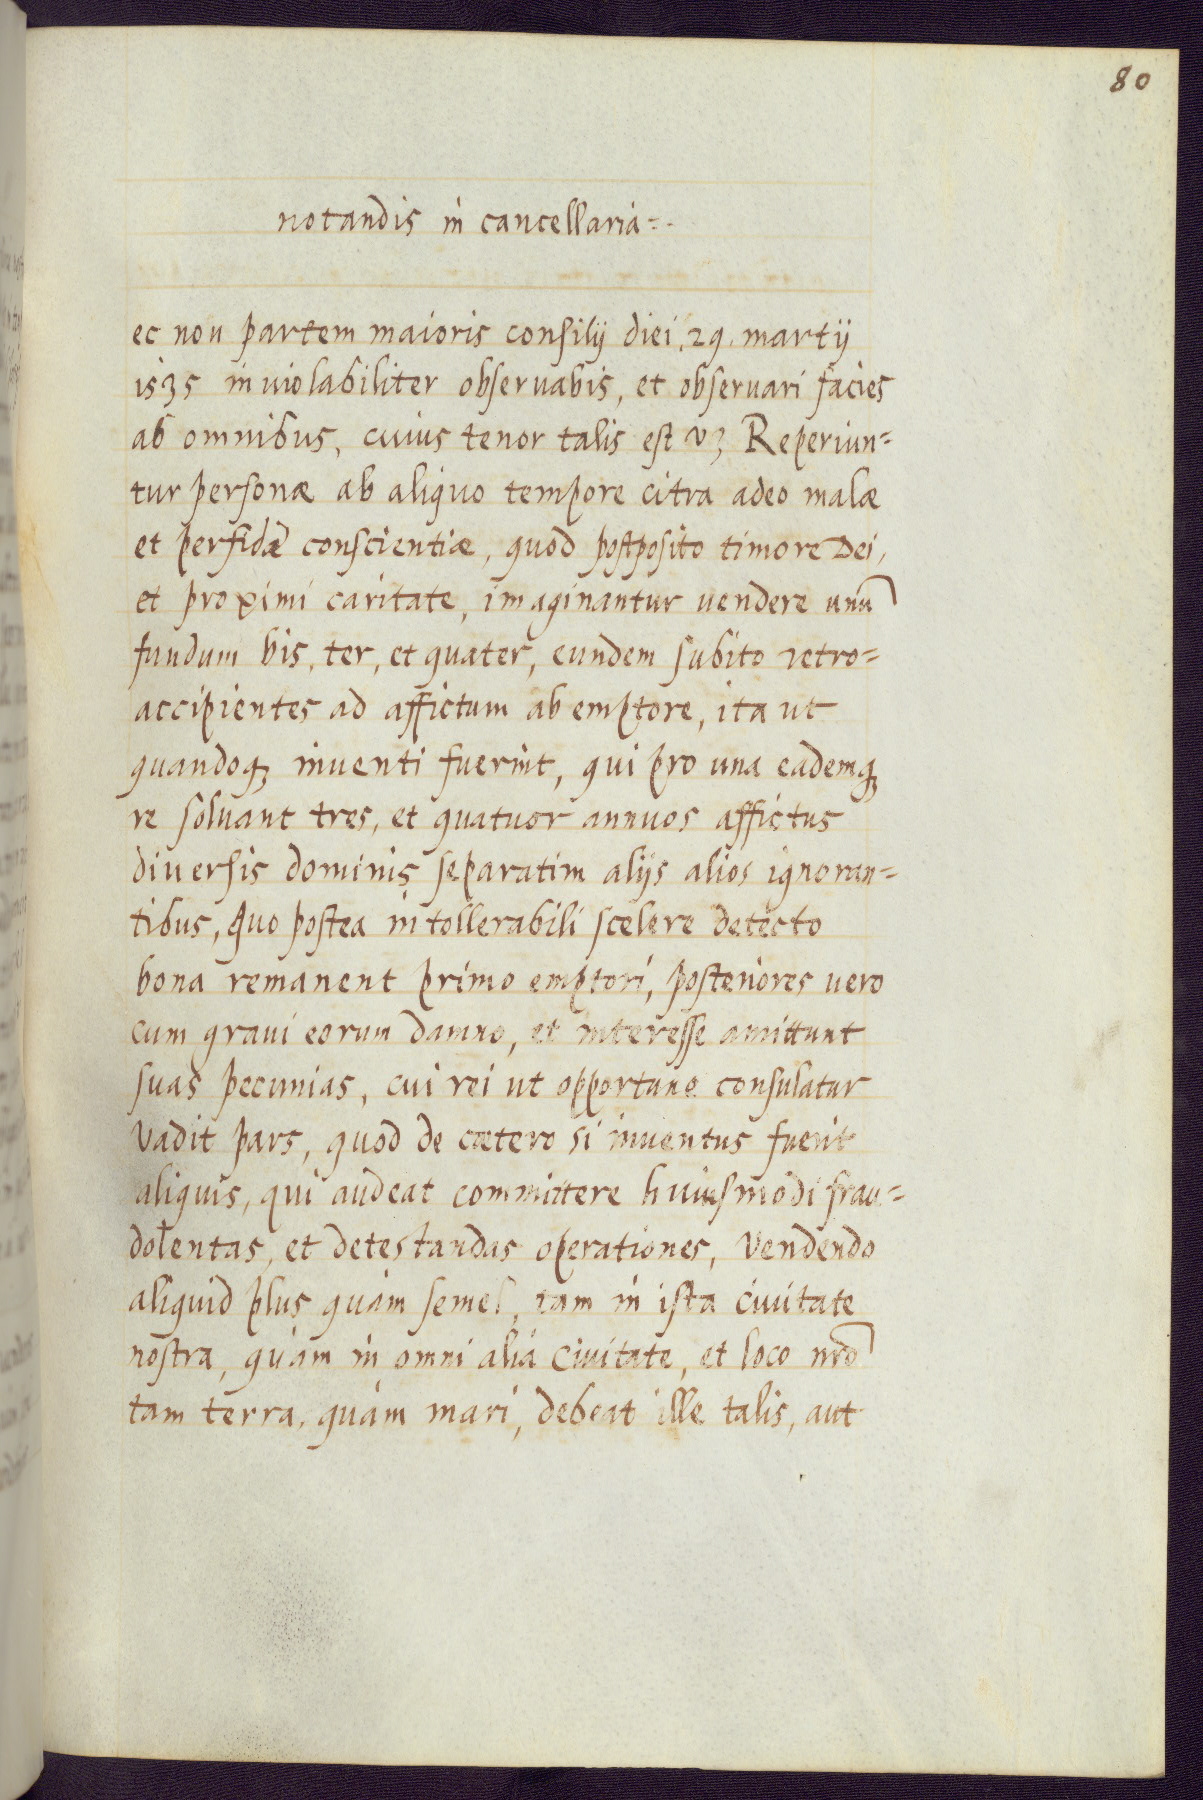 80
notandis in cancellaria=.
ec non partem maioris consilij diei .29. martij
1535 inuiolabiliter observabis, et obseruari facies
ab omnibus, cuius tenor talis est vꝫ Reperiun=
tur personæ ab aliquo tempore citra adeo malæ
et perfidæ conscientiæ, quod postposito timore Dei,
et proximi caritate, imaginantur uendere unũ
fundum bis, ter, et quater, eundem subito retro=
accipientes ad affictum ab emptore, ita ut
quandoqꝫ inuenti fuerint, qui pro una eademqꝫ
re soluant tres, et quatuor annuos affictus
diuersis dominis separatim alijs alios ignoran=
tibus, Quo postea intollerabili scelere detecto
bona remanent primo emptori, posteriores uero
cum graui eorum damno, et interesse amittunt
suas pecunias, cui rei ut opportune consulatur
Vadit pars, quod de cætero si inuentus fuerit
aliquis, qui audeat committere huiusmodi frau=
dolentas, et detestandas operationes, Vendendo
aliquid plus quàm semel, tam in ista ciuitate
nostra, quàm in omni alia Ciuitate, et loco nr̃o
tam terra, quàm mari, debeat ille talis, aut